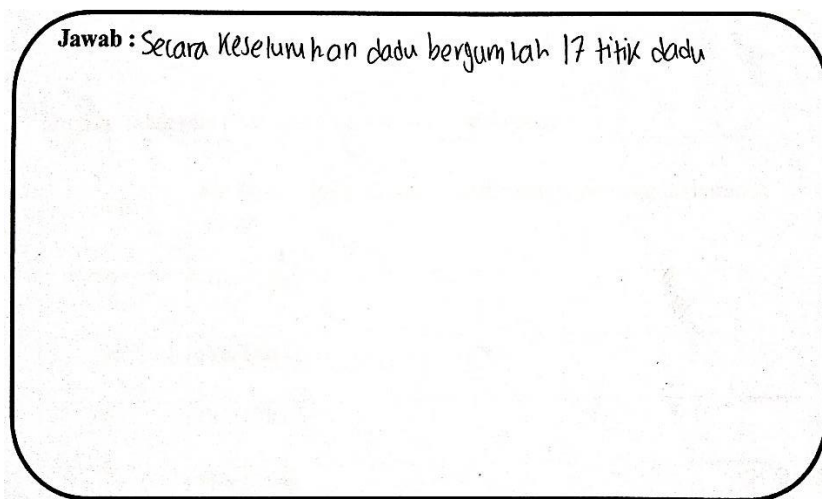 Jawab : Secara Keseluruhan dadu bergumlah 17 titik dadu